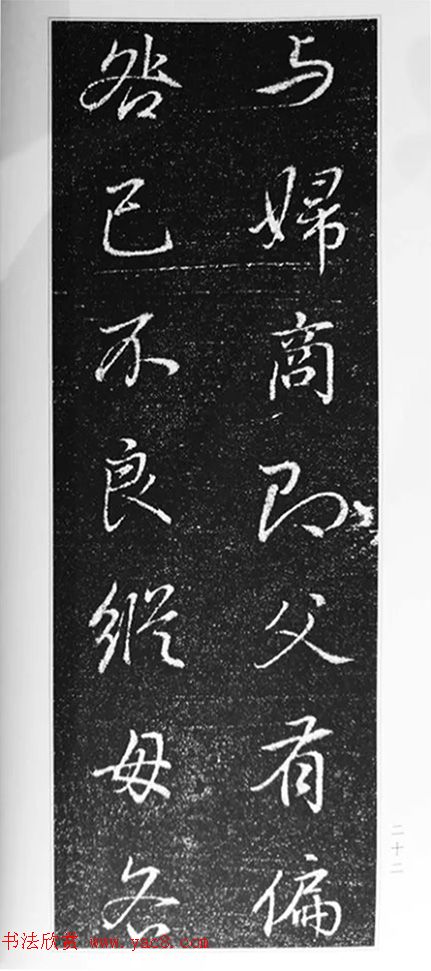 与婦商即父有偏
咎已不良縱毋各
二十二
书法欣赏 www.yac8.com